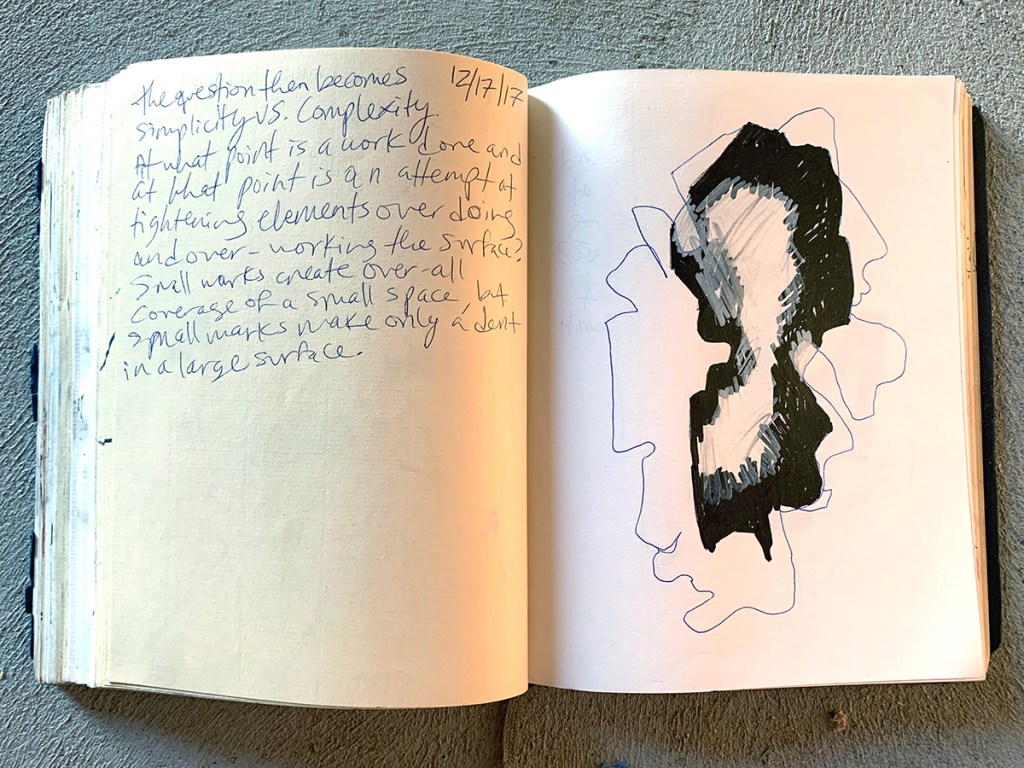 the question then becomes 12/17/17
simplicity vs. Complexity.
At what point is a work done and
at what point is an attempt at
tightening elements over doing
and over-working the surface?
Small works create over-all
coverage of a small space, but
small marks make only a dent
in a large surface.